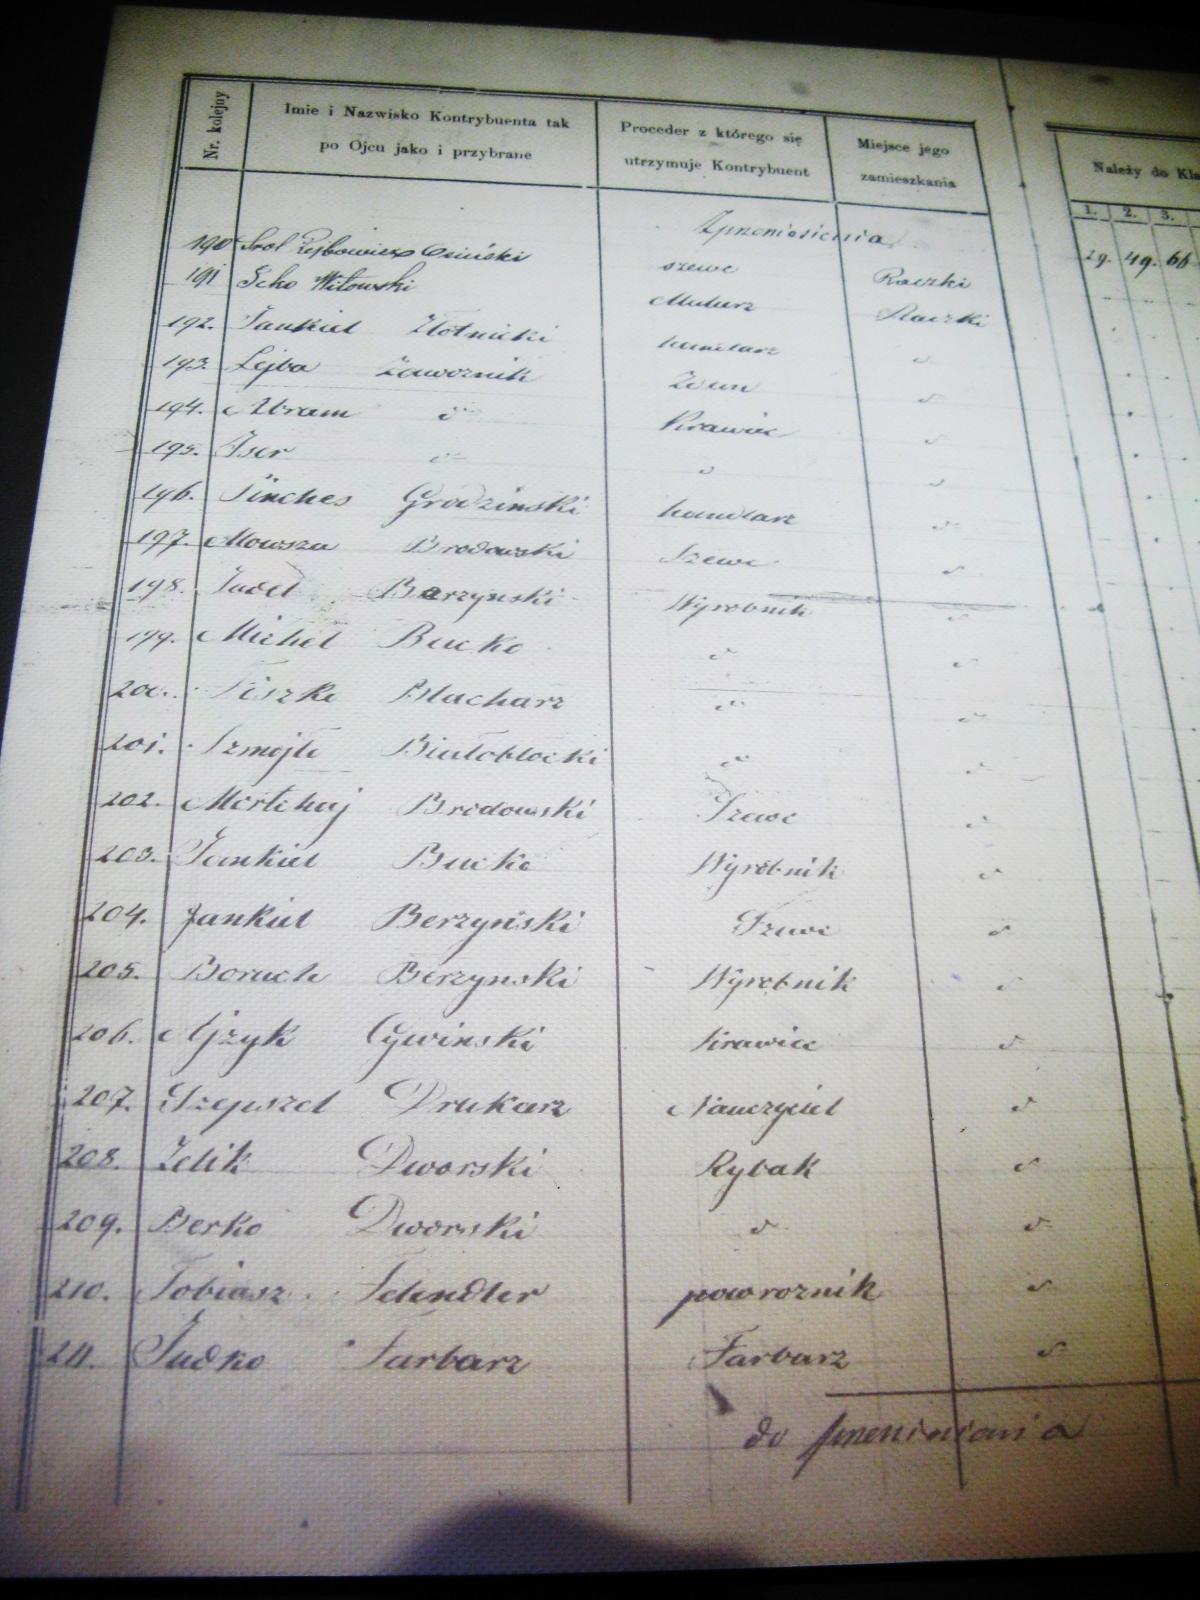 Nr. kolejny
Imie i Nazwisko Kontrybuenta tak
po Ojcu jako i przybrane
Proceder z którego się
utrzymuje Kontrybuent
Miejsce jego
zamieszkania
Należy do Kla
1. 2. 3.
Zprzeniesienia 29. 49. 66
190 Srol Lejbowicz Osiński szewc Raczki
191 Icko Witowski Mularz Raczki
192. Jankiel Złotnicki handlarz "
193. Lejba Zawoznik Zdun "
194. Abram " Krawiec "
195. Iser " " "
196. Pinches Grodzinski handlarz "
197. Mowsza Brodowski Szewc "
198. Judel Barzynski Wyrobnik "
199. Michel Bucko " "
200. Fiszke Blacharz " "
201. Szmojle Białobłocki " "
202. Mortchaj Brodowski Szewc "
203. Jankiel Bucko Wyrobnik "
204. Jankiel Berzyński Szewc "
205. Boruch Berzynski Wyrobnik "
206. Ajzyk Cywinski Krawiec "
207. Szepszel Drukarz Nauczyciel "
208. Zelik Dworski Rybak "
209. Berko Dworski " "
210. Tobiasz Felendler powroznik "
211. Judko Farbarz Farbarz "
do przeniesienia